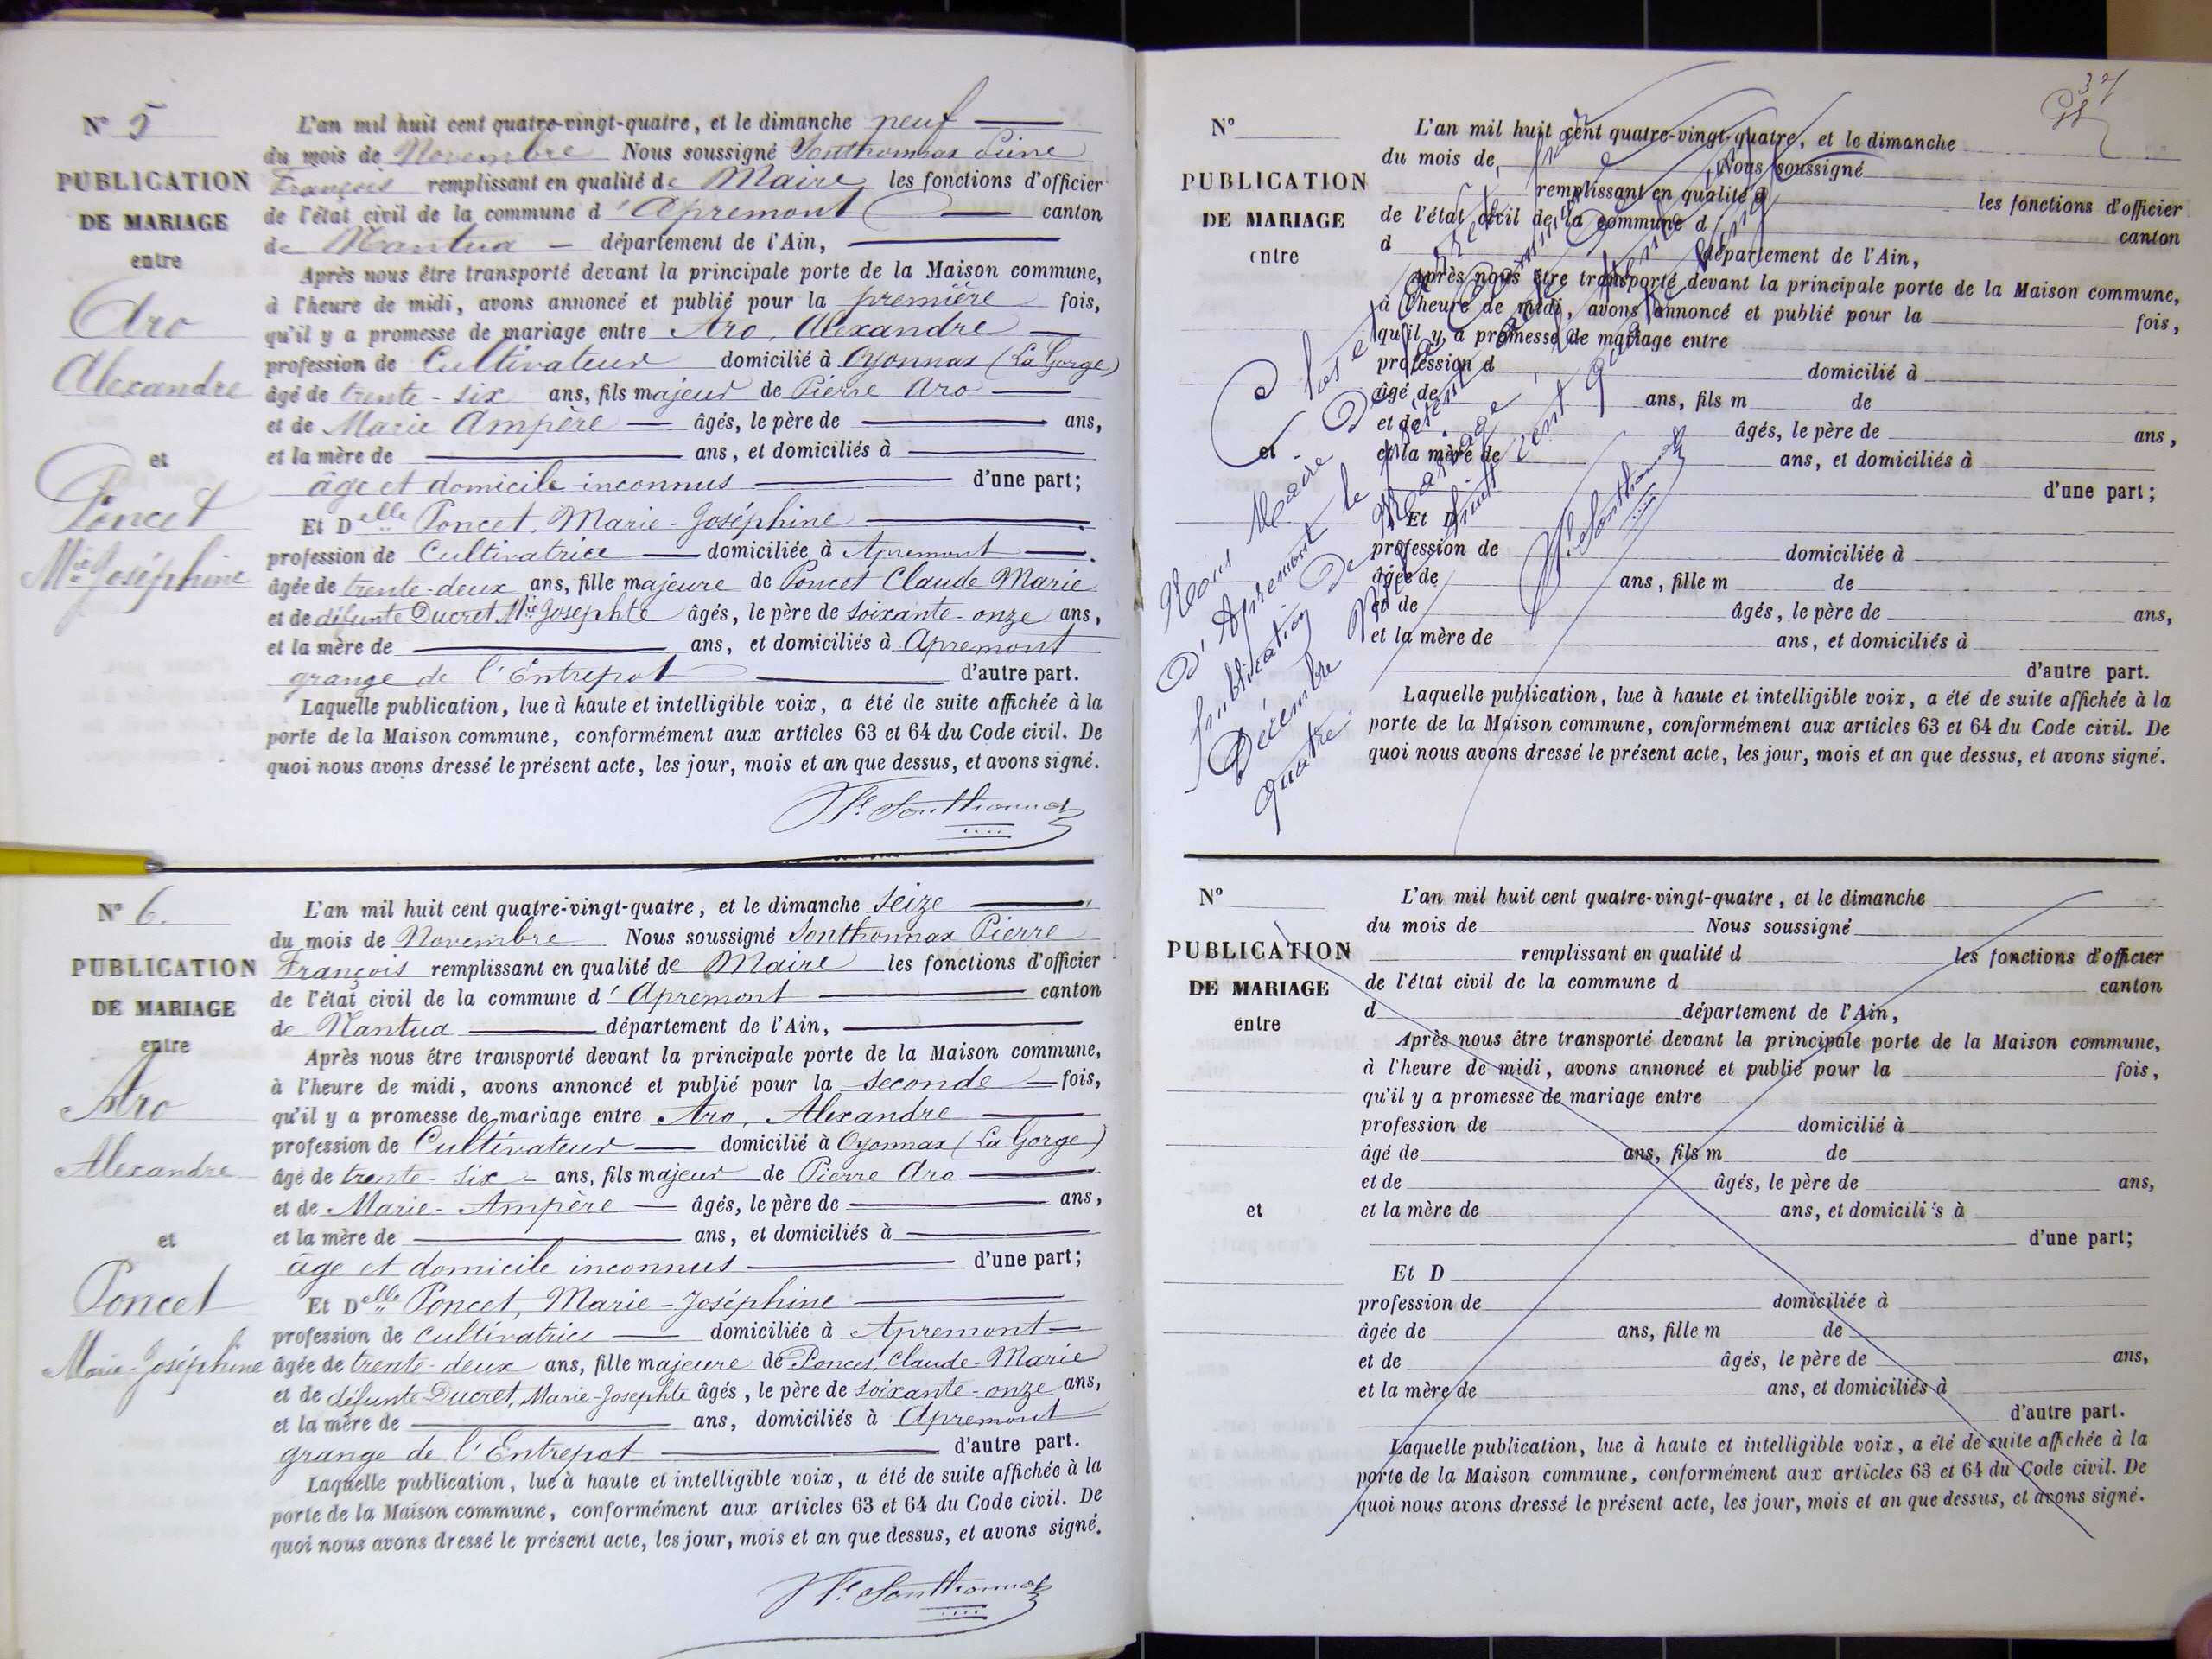 N° 5
PUBLICATION
DE MARIAGE
entre
Aro
Alexandre
et
Poncet
Mie Joséphine
L'an mil huit cent quatre-vingt-quatre, et le dimanche neuf
du mois de Novembre Nous soussigné Sonthonnax
François remplissant en qualité de Maire les fonctions d'officier
de l'état civil de la commune d'Apremont canton
de Nantua département de l'Ain,
Après nous être transporté devant la principale porte de la Maison commune,
à l'heure de midi, avons annoncé et publié pour la première fois,
qu'il y a promesse de mariage entre Aro, Alexandre
profession de Cultivateur domicilié à Oyonnax (La Gorge)
âgé de trente-six ans, fils majeur de Pierre Aro
et de Marie Ampère âgés, le père de ans,
et la mère de ans, et domiciliés à
âge et domicile inconnus d'une part;
Et Delle Poncet, Marie-Joséphine
profession de Cultivatrice domiciliée à Apremont
âgée de trente-deux ans, fille majeure de Poncet Claude Marie
et de défunte Ducret Mie Josephte âgés, le père de soixante-onze ans,
et la mère de ans, et domiciliés à Apremont
grange de l'Entrepot d'autre part.
Laquelle publication, lue à haute et intelligible voix, a été de suite affichée à la
porte de la Maison commune, conformément aux articles 63 et 64 du Code civil. De
quoi nous avons dressé le présent acte, les jour, mois et an que dessus, et avons signé.
Sonthonnax
N° 6.
PUBLICATION
DE MARIAGE
entre
Aro
Alexandre
et
Poncet
Marie-Joséphine
L'an mil huit cent quatre-vingt-quatre, et le dimanche seize
du mois de Novembre Nous soussigné Sonthonnax Pierre
François remplissant en qualité de Maire les fonctions d'officier
de l'état civil de la commune d'Apremont canton
de Nantua département de l'Ain,
Après nous être transporté devant la principale porte de la Maison commune,
à l'heure de midi, avons annoncé et publié pour la seconde fois,
qu'il y a promesse de mariage entre Aro, Alexandre
profession de Cultivateur domicilié à Oyonnax (La Gorge)
âgé de trente-six ans, fils majeur de Pierre Aro
et de Marie-Ampère âgés, le père de ans,
et la mère de ans, et domiciliés à
âge et domicile inconnus d'une part;
Et Delle Poncet, Marie-Joséphine
profession de cultivatrice domiciliée à Apremont
âgée de trente-deux ans, fille majeure de Poncet, Claude-Marie
et de défunte Ducret, Marie-Josephte âgés, le père de soixante-onze ans,
et la mère de ans, domiciliés à Apremont
grange de l'Entrepot d'autre part.
Laquelle publication, lue à haute et intelligible voix, a été de suite affichée à la
porte de la Maison commune, conformément aux articles 63 et 64 du Code civil. De
quoi nous avons dressé le présent acte, les jour, mois et an que dessus, et avons signé.
Sonthonnax
37
N°
PUBLICATION
DE MARIAGE
entre
et
L'an mil huit cent quatre-vingt-quatre, et le dimanche
du mois de Nous soussigné
remplissant en qualité d les fonctions d'officier
de l'état civil de la commune d canton
d département de l'Ain,
Après nous être transporté devant la principale porte de la Maison commune,
à l'heure de midi, avons annoncé et publié pour la fois,
qu'il y a promesse de mariage entre
profession d domicilié à
âgé de ans, fils m de
et de âgés, le père de ans,
et la mère de ans, et domiciliés à
d'une part;
Et D
profession de domiciliée à
âgée de ans, fille m de
et de âgés, le père de ans,
et la mère de ans, et domiciliés à
d'autre part.
Laquelle publication, lue à haute et intelligible voix, a été de suite affichée à la
porte de la Maison commune, conformément aux articles 63 et 64 du Code civil. De
quoi nous avons dressé le présent acte, les jour, mois et an que dessus, et avons signé.
Clos
Nous Maire de la
d'Apremont le présent
publication de Mariage
Décembre mil huit cent quatre
quatre.
Sonthonnax
N°
PUBLICATION
DE MARIAGE
entre
et
L'an mil huit cent quatre-vingt-quatre, et le dimanche
du mois de Nous soussigné
remplissant en qualité d les fonctions d'officier
de l'état civil de la commune d canton
d département de l'Ain,
Après nous être transporté devant la principale porte de la Maison commune,
à l'heure de midi, avons annoncé et publié pour la fois,
qu'il y a promesse de mariage entre
profession de domicilié à
âgé de ans, fils m de
et de âgés, le père de ans,
et la mère de ans, et domicili's à
d'une part;
Et D
profession de domiciliée à
âgée de ans, fille m de
et de âgés, le père de ans,
et la mère de ans, et domiciliés à
d'autre part.
Laquelle publication, lue à haute et intelligible voix, a été de suite affichée à la
porte de la Maison commune, conformément aux articles 63 et 64 du Code civil. De
quoi nous avons dressé le présent acte, les jour, mois et an que dessus, et avons signé.